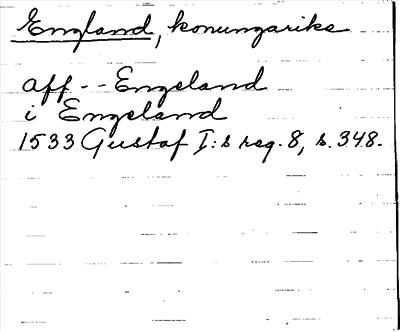 England, konungarike
aff -- Engeland
i Engeland
1533 Gustaf I:s reg. 8, s. 348.